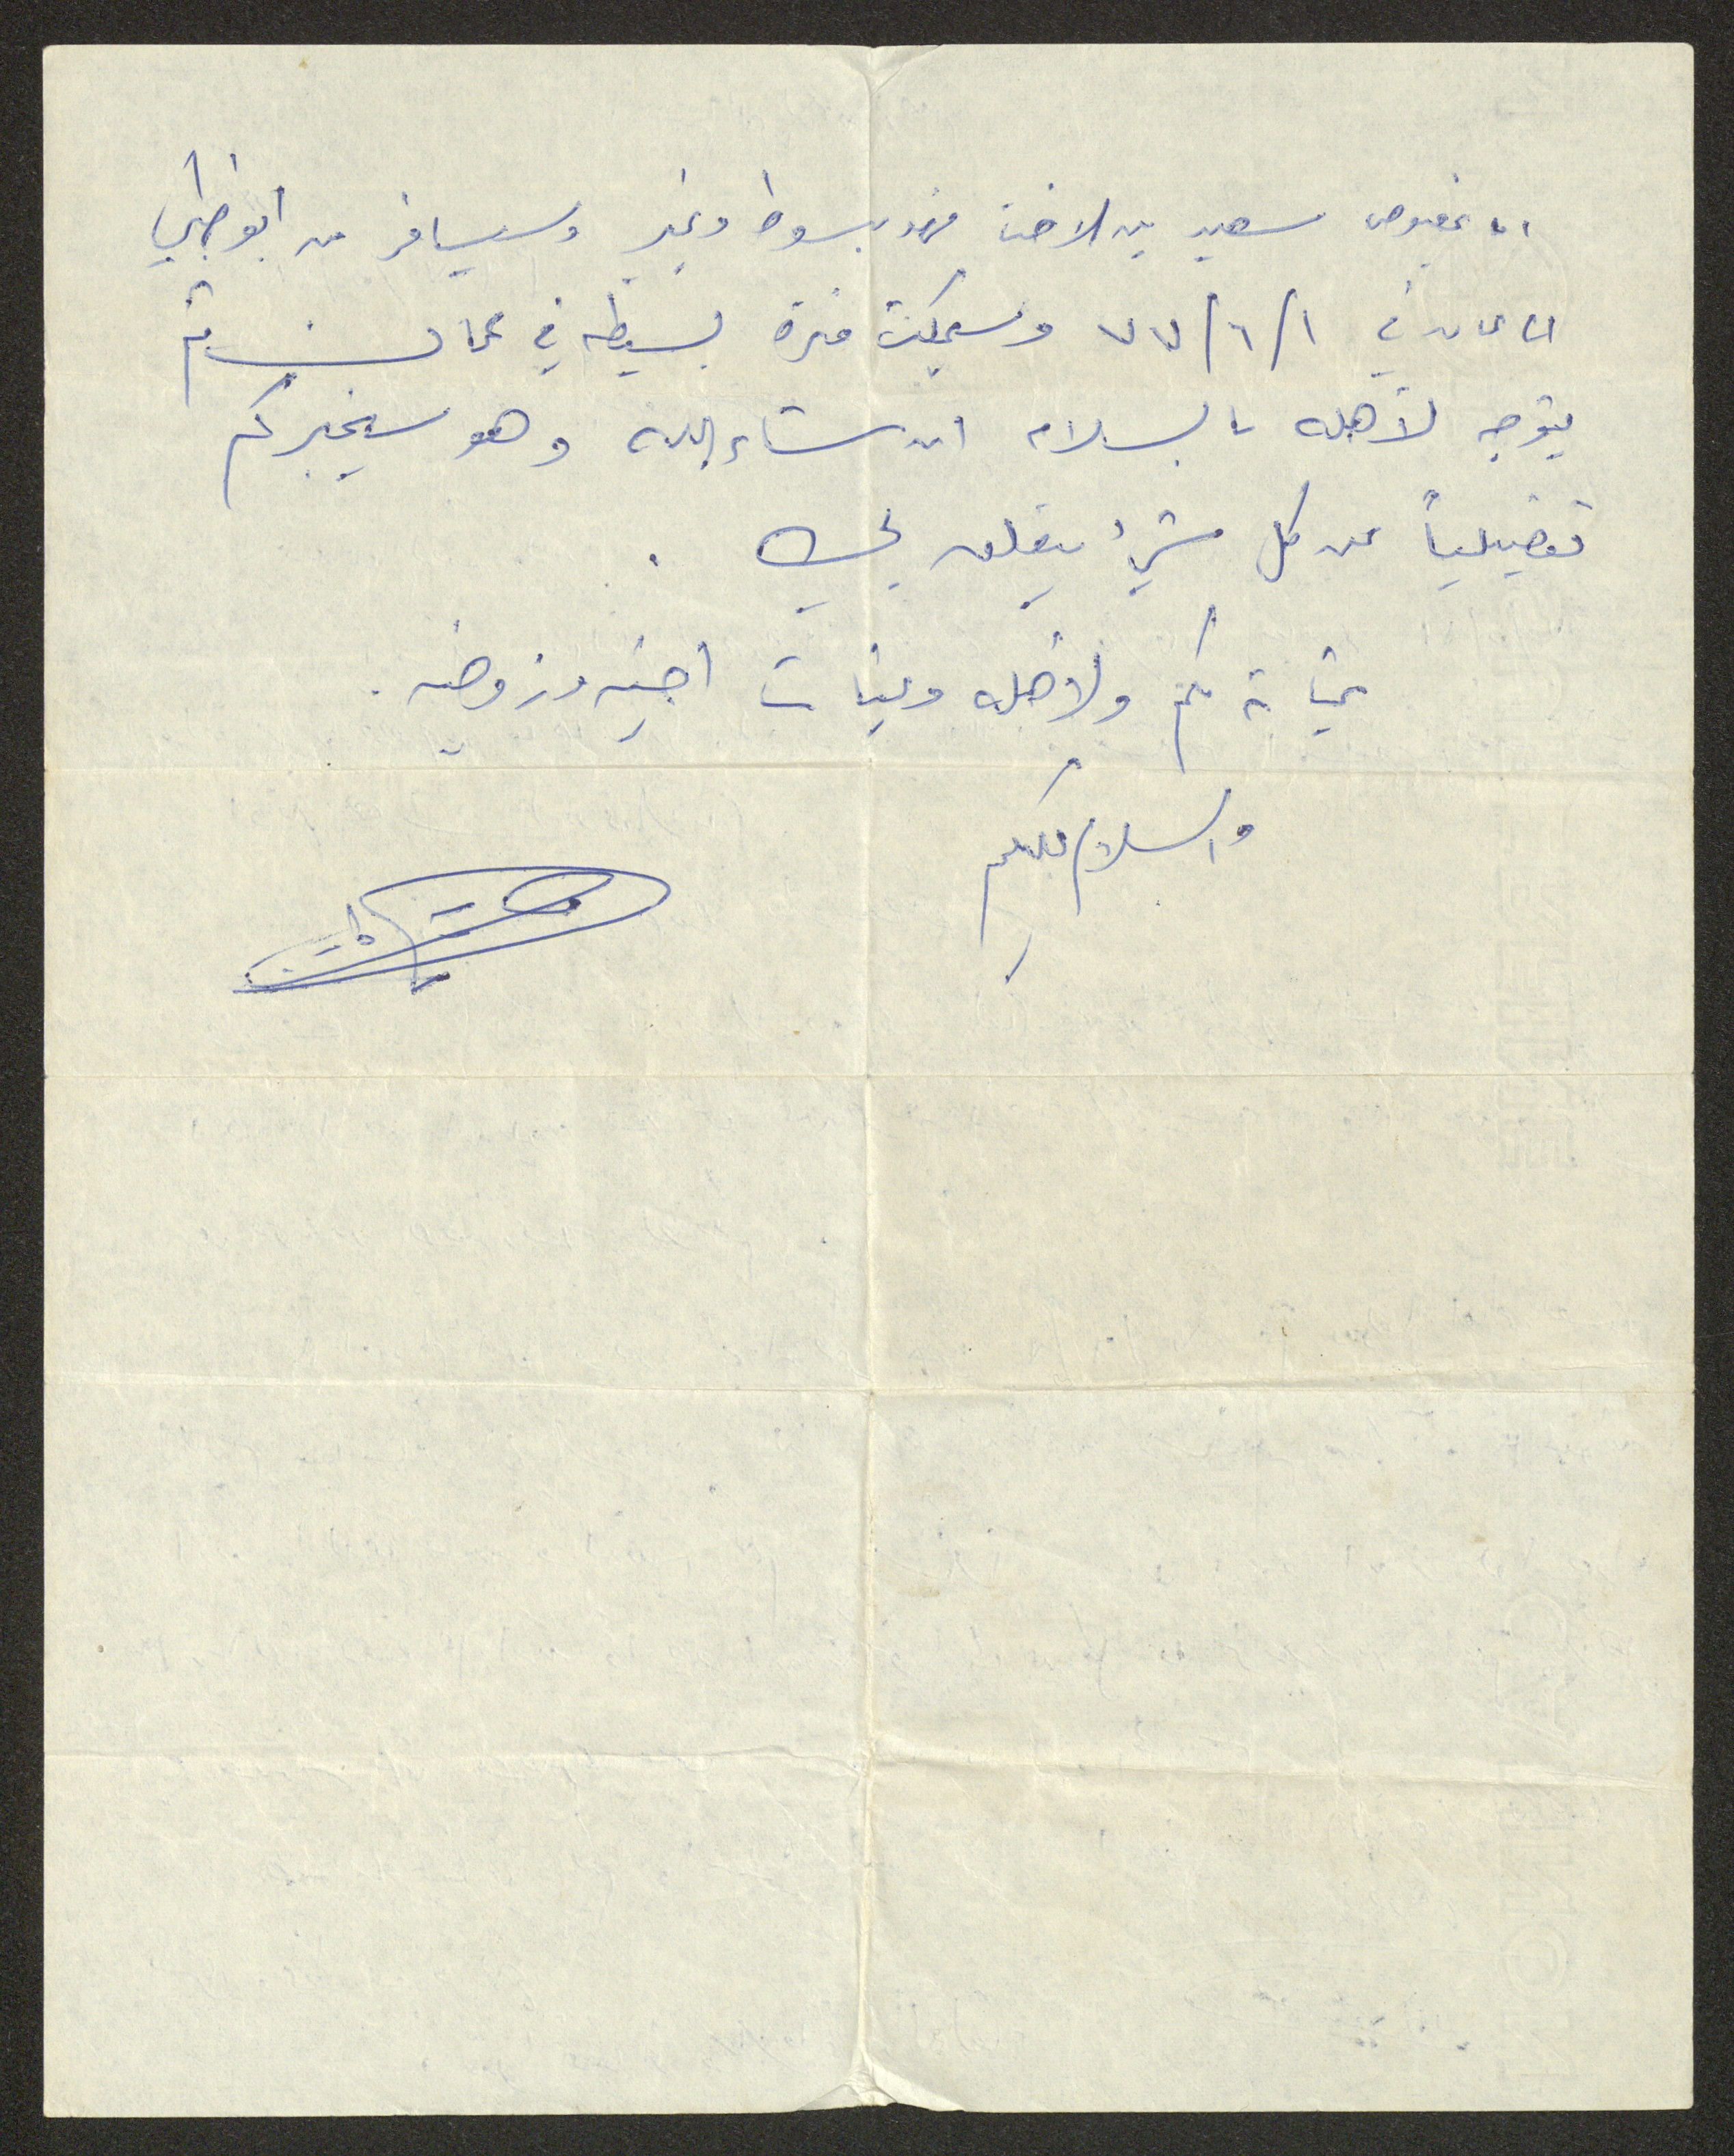 اما بخصوص سعيد بن الاخت فهو مبسوط وبخير وسيسافر من ابوظبي
الى عمان في ١/٦/٧٧ وسيمكث فترة بسيطه في عمان ثم
يتوجه لأهله بالسلامه ان شاء الله وهو سيخبركم
تفصيلياً عن كل شيء يتعلق بي
تحياتي لكم ولأهله وبنات اختي وزوجته .
والسلام عليكم